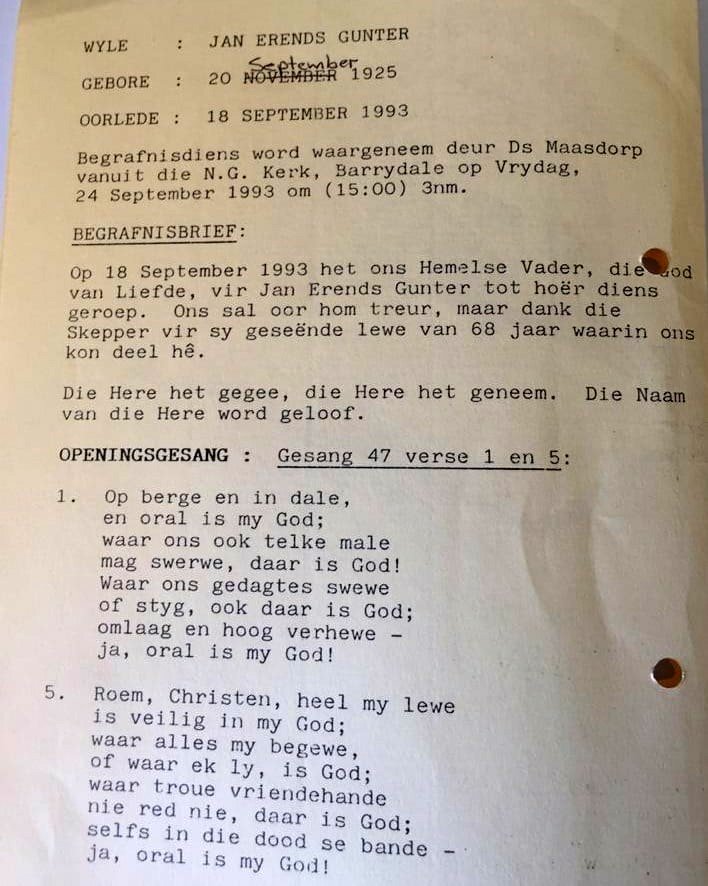 WYLE : JAN ERENDS GUNTER
September
GEBORE : 20 NOVEMBER 1925
OORLEDE : 18 SEPTEMBER 1993
Begrafnisdiens word waargeneem deur Ds Maasdorp
vanuit die N.G. Kerk, Barrydale op Vrydag,
24 September 1993 om (15:00) 3nm.
BEGRAFNISBRIEF:
Op 18 September 1993 het ons Hemelse Vader, die God
van Liefde, vir Jan Erends Gunter tot hoër diens
geroep. Ons sal oor hom treur, maar dank die
Skepper vir sy geseënde lewe van 68 jaar waarin ons
kon deel hê.
Die Here het gegee, die Here het geneem. Die Naam
van die Here word geloof.
OPENINGSGESANG : Gesang 47 verse 1 en 5:
1. Op berge en in dale,
en oral is my God;
waar ons ook telke male
mag swerwe, daar is God!
Waar ons gedagtes swewe
of styg, ook daar is God;
omlaag en hoog verhewe -
ja, oral is my God!
5. Roem, Christen, heel my lewe
is veilig in my God;
waar alles my begewe,
of waar ek ly, is God;
waar troue vriendehande
nie red nie, daar is God;
selfs in die dood se bande -
ja, oral is my God!